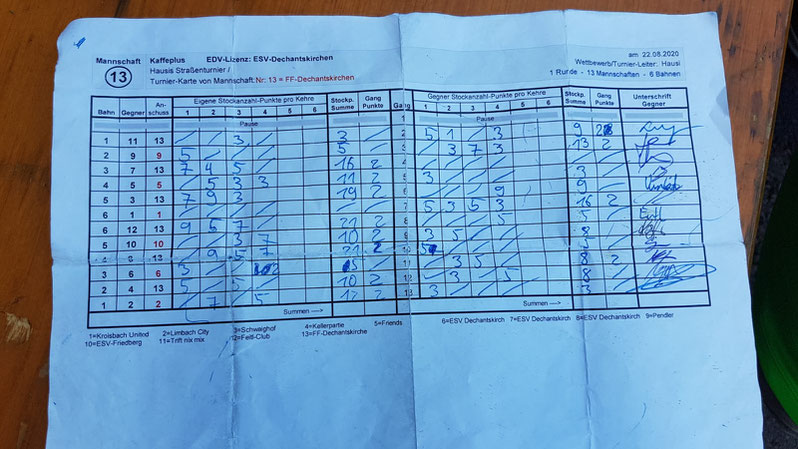 Mannschaft Kaffeplus EDV-Lizenz: ESV-Dechantskirchen am 22.08.2020
13 Hausis Straßenturnier / Wettbewerb/Turnier-Leiter: Hausi
Turnier-Karte von Mannschaft: Nr: 13 = FF-Dechantskirchen 1 Runde - 13 Mannschaften - 6 Bahnen
Bahn Gegner An-schuss Eigene Stockanzahl-Punkte pro Kehre Stockp. Summe Gang Punkte Gang Gegner Stockanzahl-Punkte pro Kehre Stockp. Summe Gang Punkte Unterschrift Gegner
1 2 3 4 5 6 1 2 3 4 5 6
Pause 1 Pause
1 11 13 / / 3 / 3 2 5 1 / 3 9 2
2 9 9 5 / / / 5 3 / 3 7 3 13 2
3 7 13 7 4 5 / 16 2 4 / / /
4 5 5 / 5 3 3 11 2 5 3 / / / 3
5 3 13 7 9 3 / 19 2 6 / / / 9 9
6 1 1 / / / / 7 5 3 5 3 16 2
6 12 13 9 5 7 / 21 2 8 / / / 5 5
5 10 10 / / 3 7 10 2 9 3 5 / / 8
4 8 13 / 9 5 7 21 2 10 5 / / / 5
3 6 6 3 / / 2 5 11 / 3 5 / 8 2
2 4 13 5 / 5 / 10 2 12 / 3 / 5 8
1 2 2 / 7 / 5 12 2 13 3 / / / 3
Summen ---> Summen --->
1=Kroisbach United 2=Limbach City 3=Schwaighof 4=Kellerpartie 5=Friends 6=ESV Dechantskirch 7=ESV Dechantskirch 8=ESV Dechantskirch 9=Pendler
10=ESV-Friedberg 11=Trifft nix mix 12=Feitl-Club 13=FF-Dechantskirche